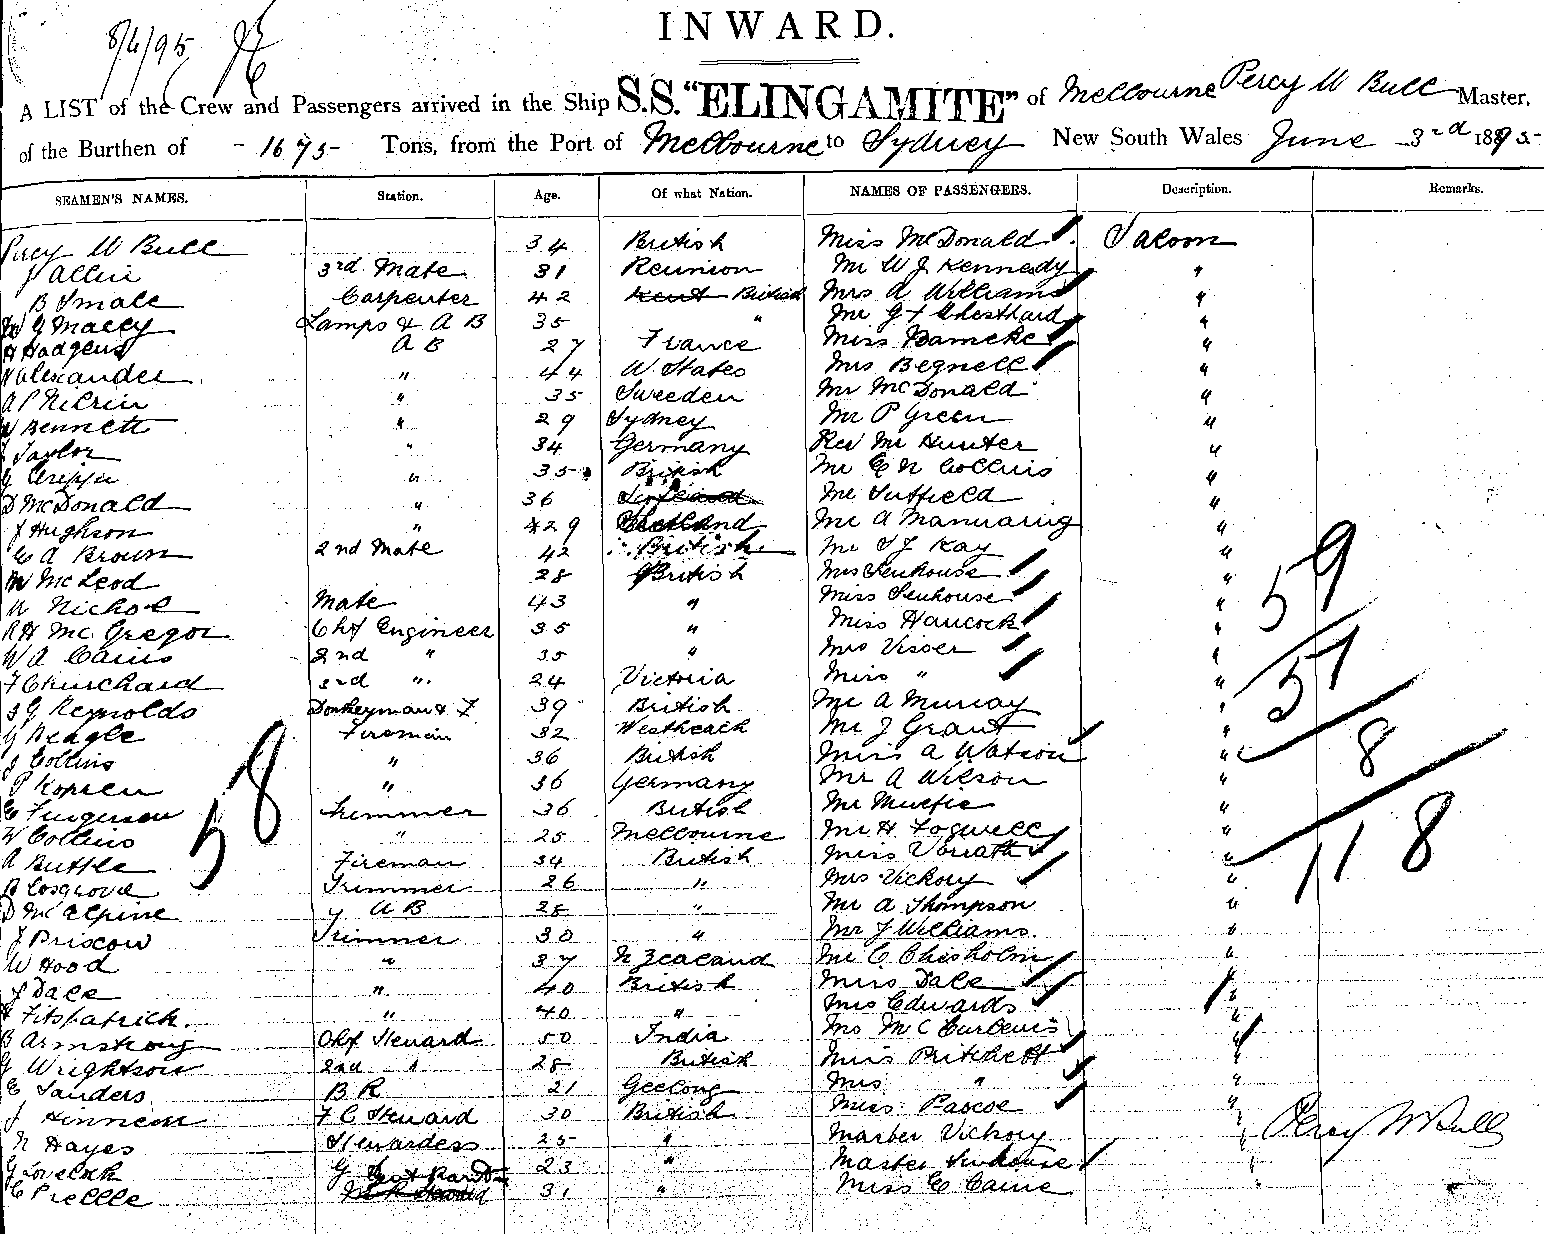 8/6/95
INWARD.
A LIST of the Crew and Passengers arrived in the Ship S.S. "ELINGAMITE" of Melbourne Percy W Bull Master,
of the Burthen of - 1675 - Tons, from the Port of Melbourne to Sydney New South Wales June 3rd 1895-
SEAMEN'S NAMES. Station. Age. Of what Nation. NAMES OF PASSENGERS. Description. Remarks.
Percy W Bull 34 British Miss McDonald Saloon
J Allen 3rd Mate 31 Reunion Mr W J Kennedy "
B Small Carpenter 42 Kent British Mrs A Williams "
Lamps & A B 35 " Mr "
H Hodgens A B 27 France Miss "
Alexander " 44 U. States Mrs Begnell "
" 35 Sweden Mr McDonald "
Bennett " 29 Sydney Mr P Green "
J Taylor " 34 Germany Rev Mr Hunter "
" 35 British Mr E N Collins "
D McDonald " 36 Mr Suffield "
J Hughson " 29 Shetland Mr A Manuaring "
E A Brown 2nd Mate 42 British Mr S J Kay "
M McLeod 28 British Mrs Senhouse "
W Nichol Mate 43 " Miss Senhouse "
R H Mc Gregor Chf Engineer 35 " Miss Hancock "
W A Cairns 2nd " 35 " Mrs Visoer "
F Churchard 3rd " 24 Victoria Miss " "
S G Reynolds Donkeyman & F 39 British Mr A Murray "
G Neagle Fireman 32 Mr J Grant "
J Collins " 36 British Miss A Watson "
P Kopsen " 36 Germany Mr A Wilson "
E Ferguson Trimmer 36 British Mr "
W Collins " 25 Melbourne Mr H Fogwell "
A Buttle Fireman 34 British Miss "
B Cosgrove Trimmer 26 " Mrs Vickory "
D McAlpine A B 28 " Mr A Thompson "
J Driscow Trimmer 30 " Mr J Williams "
W Hood " 37 N Zealand Mr C Chisholm "
J Dale " 40 British Miss Dale "
Fitspatrick " 40 " Mrs Edwards "
B Armstrong Chf Steward 50 India "
G Wrightson 2nd " 28 British Miss Pritchett "
E Sanders B R 21 Geelong Mrs " "
J F C Steward 30 British Miss Pascoe "
N Hayes Stewardess 25 " Master Vickory "
G Lovelock 23 " Master Senhouse "
C 31 " Miss E Caine "
58
59
51
8
118
Percy W Bull